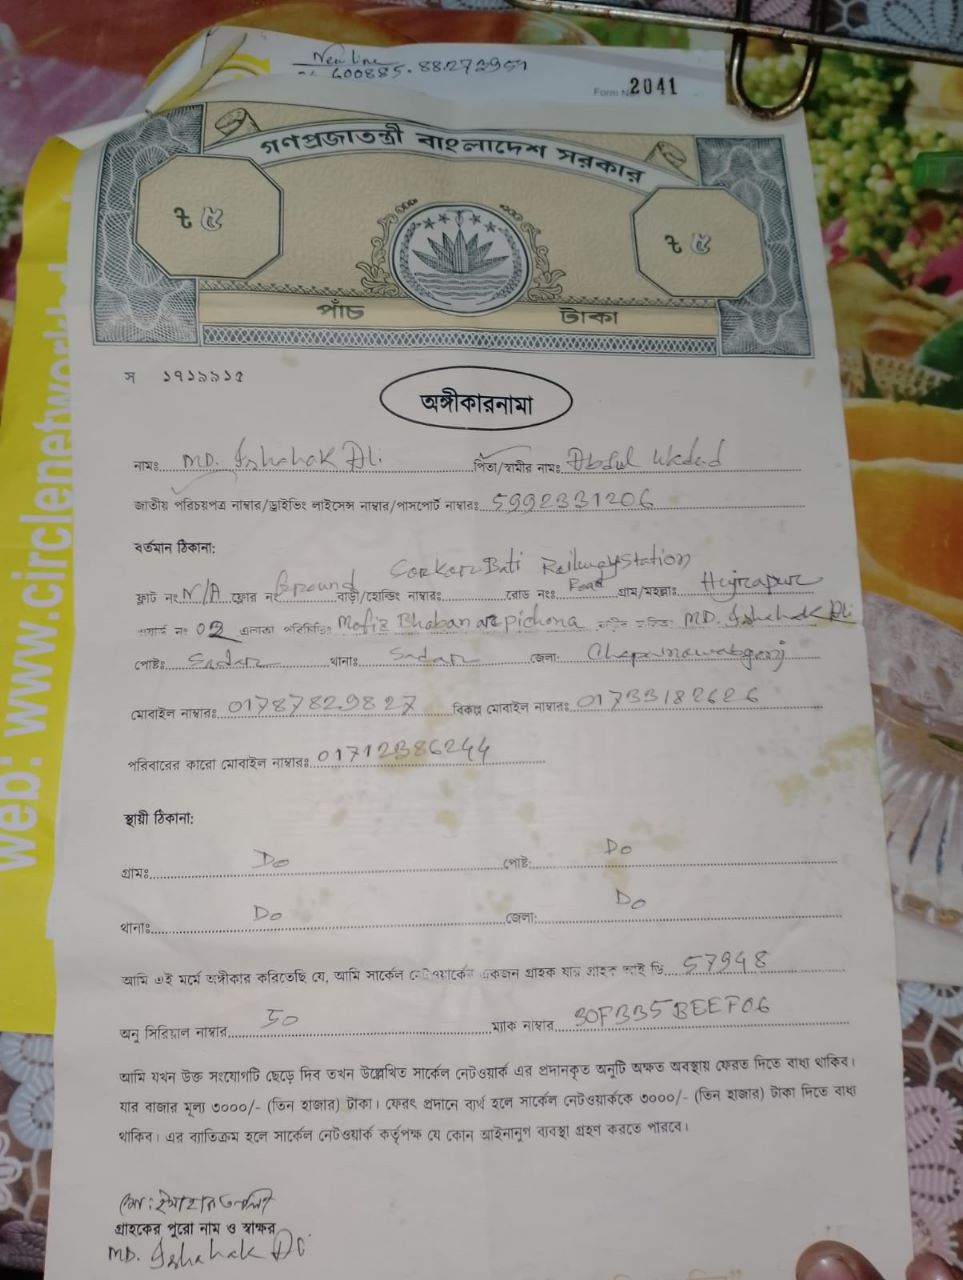 New line
600885.88273951
Form No 2041
গণপ্রজাতন্ত্রী বাংলাদেশ সরকার
৳ ৫
৳ ৫
পাঁচ টাকা
স ১৭১৯৯১৫
অঙ্গীকারনামা
নামঃ MD. Ishahak Ali পিতা/স্বামীর নামঃ Abdul
জাতীয় পরিচয়পত্র নাম্বার/ড্রাইভিং লাইসেন্স নাম্বার/পাসপোর্ট নাম্বারঃ 5992331206
বর্তমান ঠিকানা:
Sarker Bati Railway Station
ফ্লাট নং N/A ফ্লোর নং Ground বাড়ী/হোল্ডিং নাম্বারঃ রোড নংঃ Road গ্রাম/মহল্লাঃ Hujrapur
ওয়ার্ড নং 02 এলাকা পরিচিতিঃ Mafiz Bhaban ar pichona MD. Ishahak Ali
পোষ্টঃ Sadar থানাঃ Sadar জেলা: Chapainawabganj
মোবাইল নাম্বারঃ 01787829827 বিকল্প মোবাইল নাম্বারঃ 01733182626
পরিবারের কারো মোবাইল নাম্বারঃ 01712386244
স্থায়ী ঠিকানা:
গ্রামঃ Do পোষ্ট: Do
থানাঃ Do জেলা: Do
আমি এই মর্মে অঙ্গীকার করিতেছি যে, আমি সার্কেল নেটওয়ার্কের একজন গ্রাহক যার গ্রাহক আই ডি 57948
অনু সিরিয়াল নাম্বার 50 ম্যাক নাম্বার 30FBB5BEEF06
আমি যখন উক্ত সংযোগটি ছেড়ে দিব তখন উল্লেখিত সার্কেল নেটওয়ার্ক এর প্রদানকৃত অনুটি অক্ষত অবস্থায় ফেরত দিতে বাধ্য থাকিব।
যার বাজার মূল্য ৩০০০/- (তিন হাজার) টাকা। ফেরৎ প্রদানে ব্যর্থ হলে সার্কেল নেটওয়ার্ককে ৩০০০/- (তিন হাজার) টাকা দিতে বাধ্য
থাকিব। এর ব্যতিক্রম হলে সার্কেল নেটওয়ার্ক কর্তৃপক্ষ যে কোন আইনানুগ ব্যবস্থা গ্রহণ করতে পারবে।
গ্রাহকের পুরো নাম ও স্বাক্ষর
MD. Ishahak Ali
web: www.circlenetworkbd